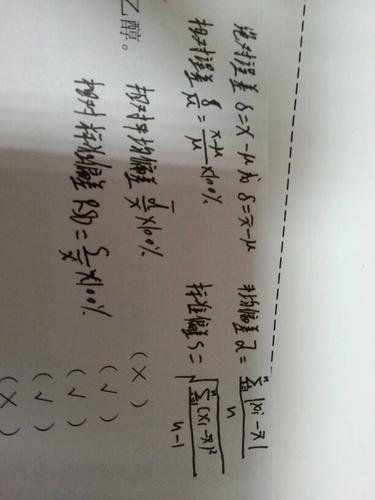 绝对误差 δ=x-μ 或 δ=x̄-μ
平均偏差 d̄ = Σ|xi-x̄| / n
相对误差 δ/μ = (x-μ)/μ ×100%
标准偏差 S = √(Σ(xi-x̄)² / (n-1))
相对平均偏差 d̄/x̄ ×100%
相对标准偏差 RSD = S/x̄ ×100%
乙醇。
( × )
( √ )
( √ )
( √ )
( × )